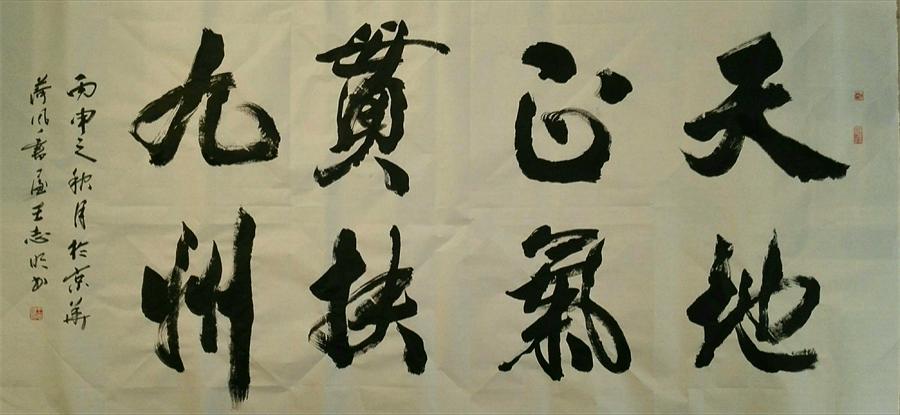 天地
正氣
貫扶
九州
丙申之秋月於京華
荷風書屋王志明書